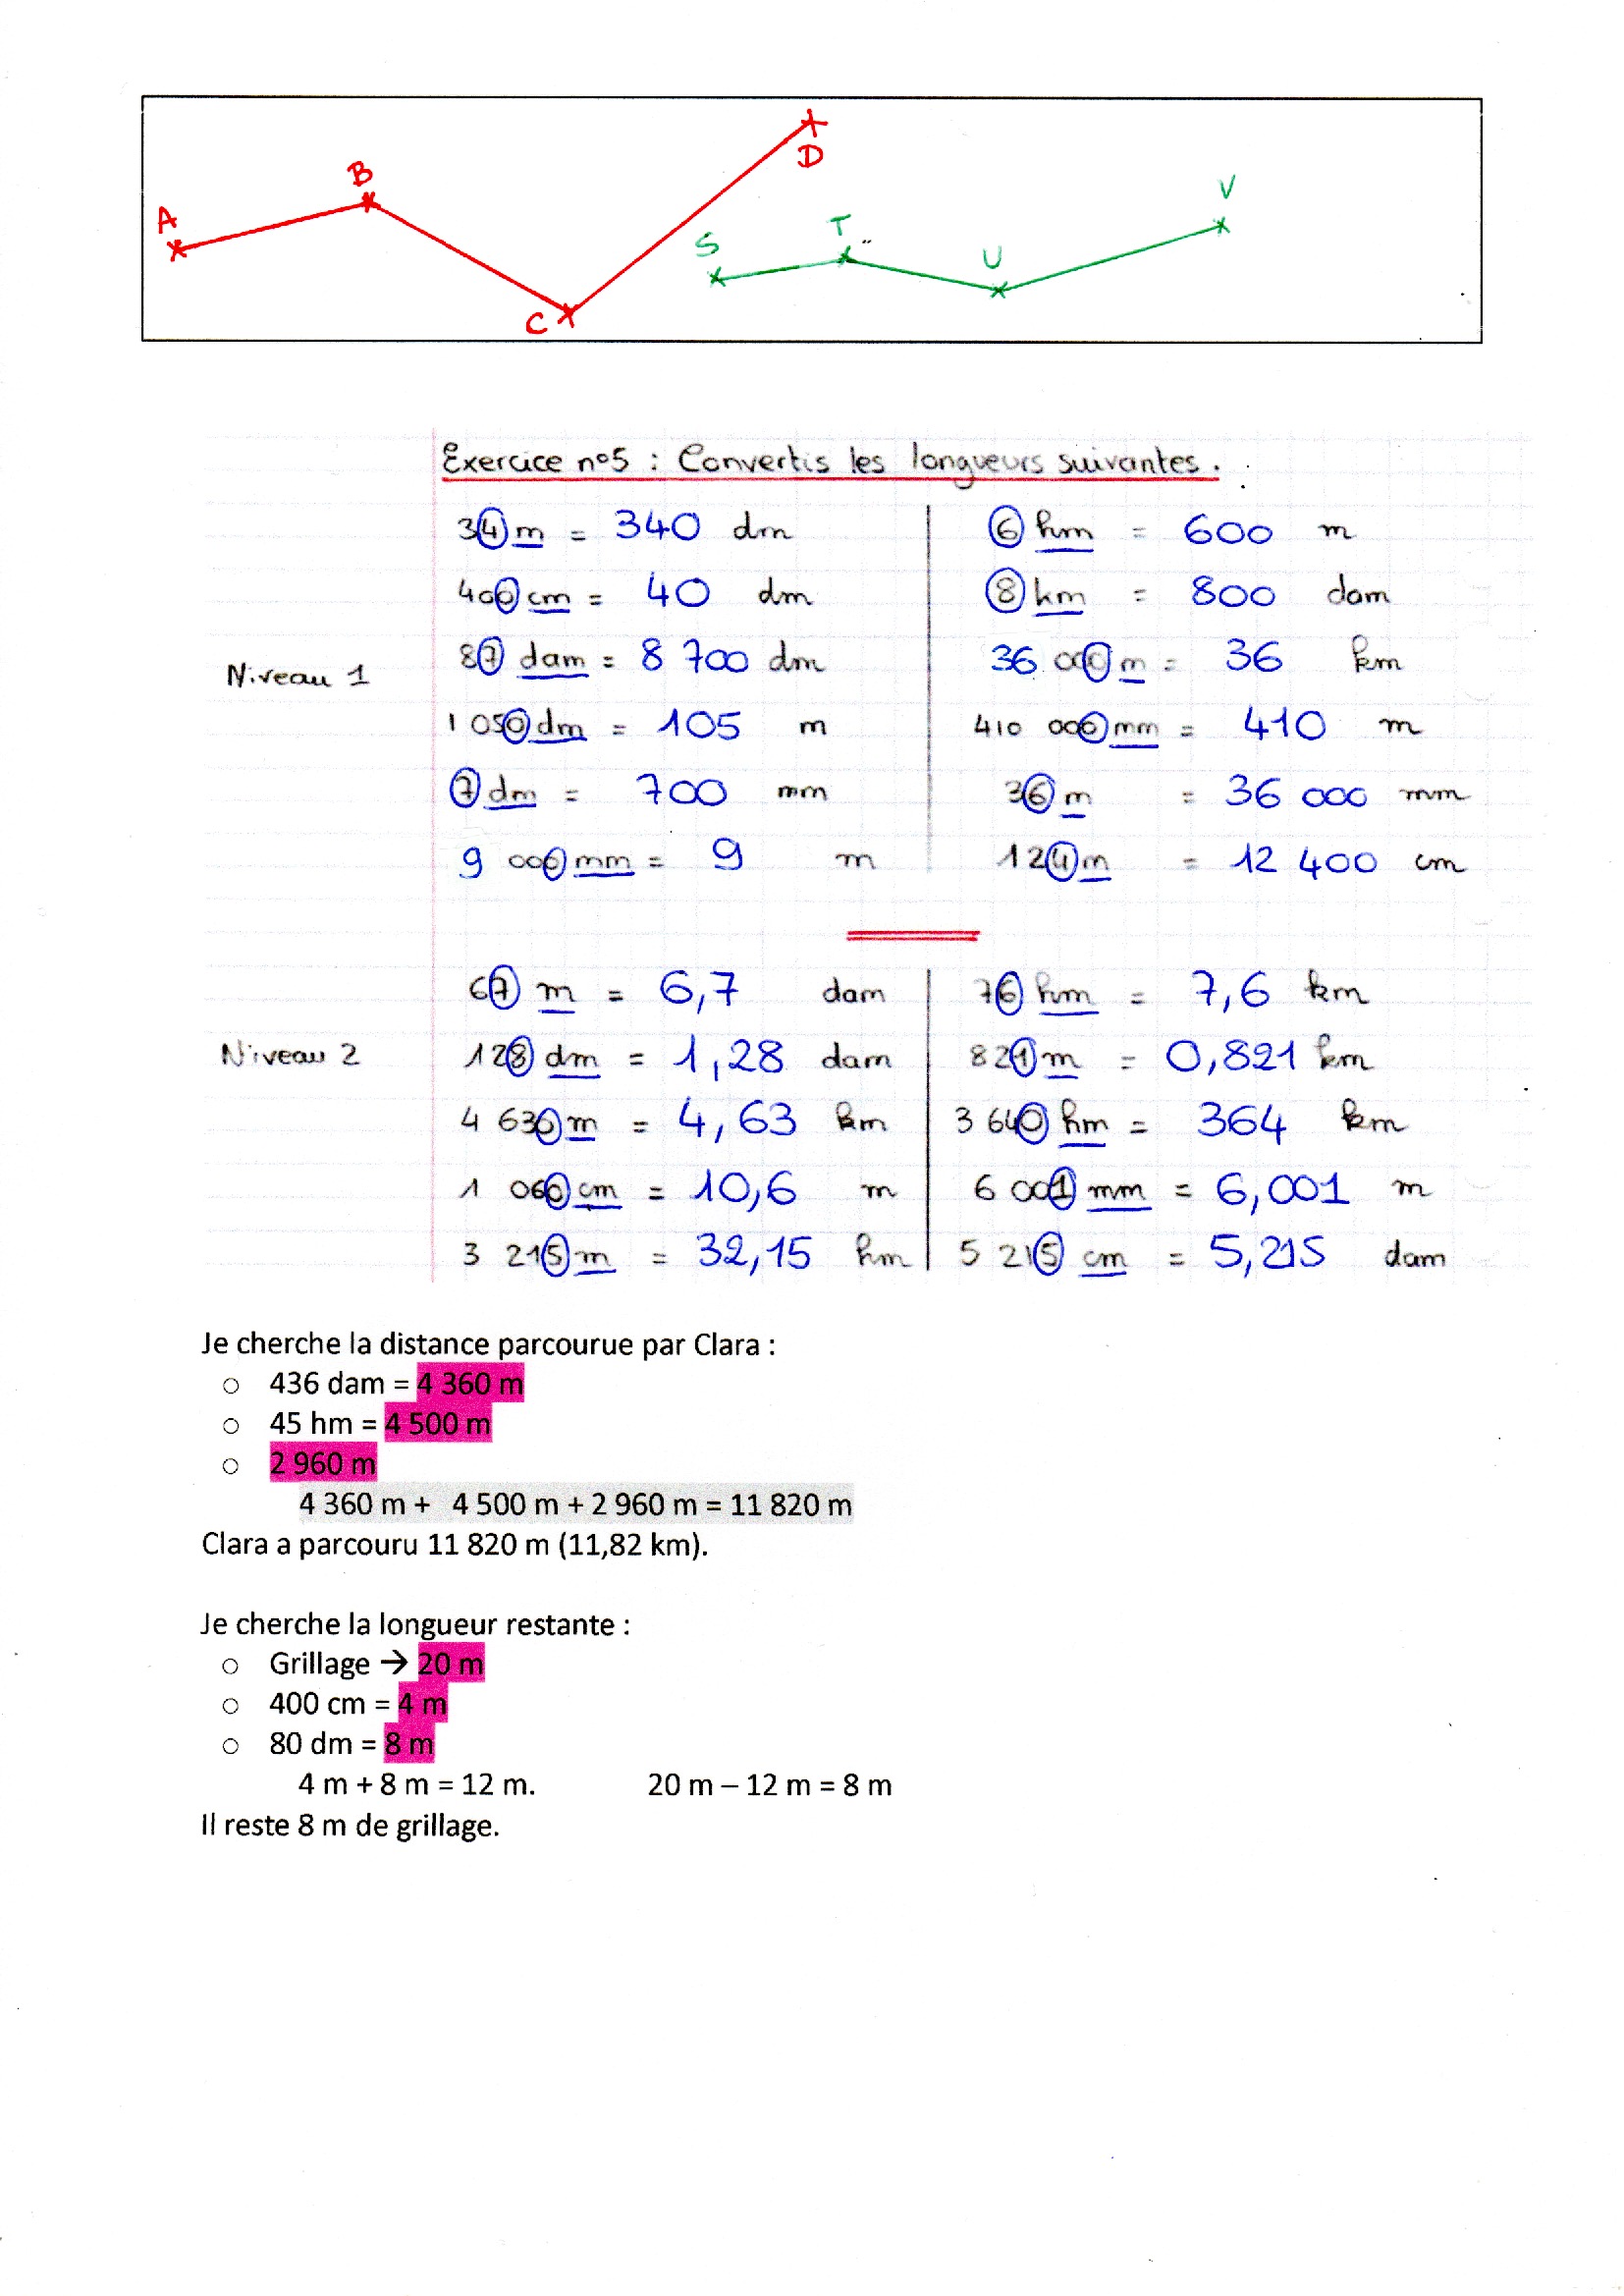 A B C D S T U V
Exercice n°5 : Convertis les longueurs suivantes.
Niveau 1
34 m = 340 dm
400 cm = 40 dm
87 dam = 8 700 dm
1 050 dm = 105 m
7 dm = 700 mm
9 000 mm = 9 m
6 hm = 600 m
8 km = 800 dam
36 000 m = 36 km
410 000 mm = 410 m
36 m = 36 000 mm
124 m = 12 400 cm
Niveau 2
67 m = 6,7 dam
128 dm = 1,28 dam
4 630 m = 4,63 km
1 060 cm = 10,6 m
3 215 m = 32,15 hm
76 hm = 7,6 km
821 m = 0,821 km
3 640 hm = 364 km
6 001 mm = 6,001 m
5 215 cm = 5,215 dam
Je cherche la distance parcourue par Clara :
o 436 dam = 4 360 m
o 45 hm = 4 500 m
o 2 960 m
4 360 m + 4 500 m + 2 960 m = 11 820 m
Clara a parcouru 11 820 m (11,82 km).
Je cherche la longueur restante :
o Grillage → 20 m
o 400 cm = 4 m
o 80 dm = 8 m
4 m + 8 m = 12 m. 20 m – 12 m = 8 m
Il reste 8 m de grillage.